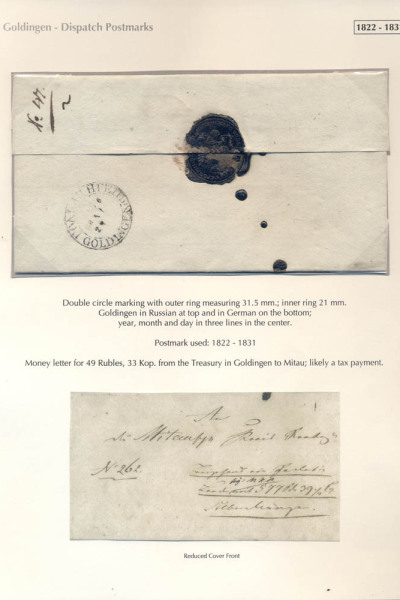 Goldingen - Dispatch Postmarks
1822 - 183
No 47.
2
GOLDINGEN
Double circle marking with outer ring measuring 31.5 mm.; inner ring 21 mm.
Goldingen in Russian at top and in German on the bottom;
year, month and day in three lines in the center.
Postmark used: 1822 - 1831
Money letter for 49 Rubles, 33 Kop. from the Treasury in Goldingen to Mitau; likely a tax payment.
An
No 262.
Reduced Cover Front